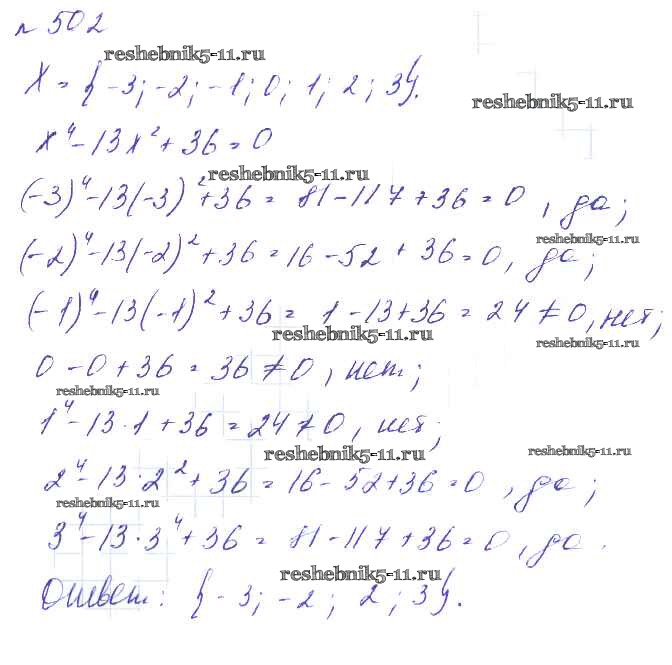 № 502
reshebnik5-11.ru
X = {-3; -2; -1; 0; 1; 2; 3}.
reshebnik5-11.ru
x⁴ - 13x² + 36 = 0
reshebnik5-11.ru
(-3)⁴ - 13(-3)² + 36 = 81 - 117 + 36 = 0, да;
reshebnik5-11.ru
(-2)⁴ - 13(-2)² + 36 = 16 - 52 + 36 = 0, да;
(-1)⁴ - 13(-1)² + 36 = 1 - 13 + 36 = 24 ≠ 0, нет;
reshebnik5-11.ru
reshebnik5-11.ru
0 - 0 + 36 = 36 ≠ 0, нет;
reshebnik5-11.ru
1⁴ - 13·1 + 36 = 24 ≠ 0, нет;
reshebnik5-11.ru
reshebnik5-11.ru
2⁴ - 13·2² + 36 = 16 - 52 + 36 = 0, да;
reshebnik5-11.ru
3⁴ - 13·3⁴ + 36 = 81 - 117 + 36 = 0, да.
reshebnik5-11.ru
Ответ: {-3; -2; 2; 3}.